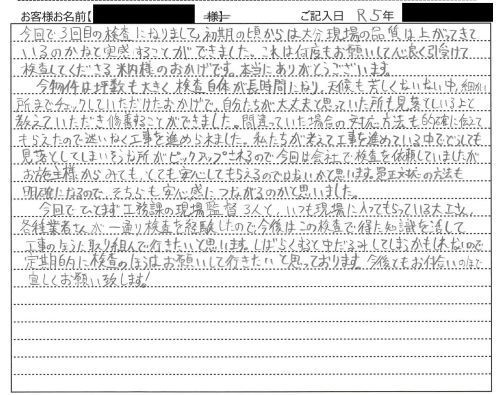 お客様お名前【 様】 ご記入日 R5年
今回で3回目の検査になりまして、初期の頃からは大分現場の品質は上がってきて
いるのかなと実感することができました。これは何度もお願いして心良く引受けて
検査してくださる 様のおかげです。本当にありがとうございます。
今物件は坪数も大きく検査自体が長時間になり、天候も苦しくない中、細かい
所までチェックしていただけたおかげで、自分たちが大丈夫と思っていた所も見落としいるよと
教えていただき修事ることができました。間違っていた場合の対応方法も的確に伝えて
もらえたので迷いなく工事を進めら来ました。私たちが考えて工事を進めている中でどうしても
見落としてしまいそうな所がピックアップ出来るので今回は会社で検査を依頼していましたが
お施主様からみても、とても安心してもらえるのではないかと思います。是正対応の方法も
明確になるので、そちらも安心感につながるのかと思いました。
今回で 工務課の現場監督3人と、いつも現場に入ってもらっている大工さん、
各種業者さんが一通り検査を経験したので今後はこの検査で得た知識を活して
工事のほうに取り組んで行きたいと思います。しばらくすると中だるみしてしまうかもしれないので、
定期的に検査のほうはお願いして行きたいと思っております。今後ともお付合いのほど
宜しくお願い致します!